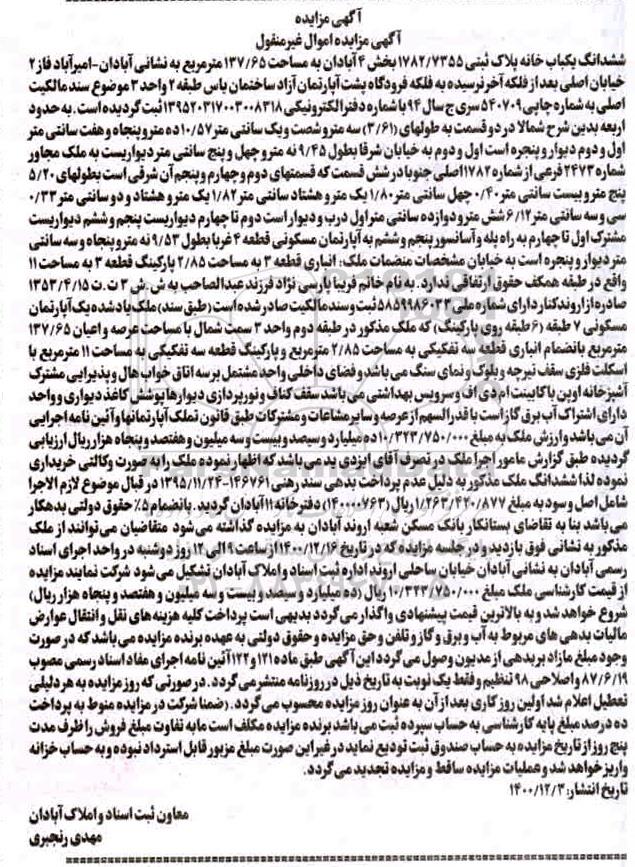 آگهی مزایده
آگهی مزایده اموال غیرمنقول
ششدانگ یکباب خانه پلاک ثبتی ۱۷۸۲/۷۳۵۵ بخش ۴ آبادان به مساحت ۱۳۷/۶۵ مترمربع به نشانی آبادان-امیرآباد فاز ۲
خیابان اصلی بعد از فلکه آخر نرسیده به فلکه فرودگاه پشت آپارتمان آزاد ساختمان یاس طبقه ۲ واحد ۳ موضوع سند مالکیت
اصلی به شماره چاپی ۵۴۰۷۰۹ سری ج سال ۹۴ با شماره دفتر الکترونیکی ۱۳۹۵۲۰۳۱۷۰۰۳۰۰۸۳۱۸ ثبت گردیده است. به حدود
اربعه بدین شرح شمالا در دو قسمت به طولهای (۳/۶۱) سه متر و شصت و یک سانتی متر ۱۰/۵۷ ده متر و پنجاه و هفت سانتی متر
اول و دوم دیوار و پنجره است اول و دوم به خیابان شرقا بطول ۹/۴۵ نه متر و چهل و پنج سانتی متر دیواریست به ملک مجاور
شماره ۲۴۷۳ فرعی از شماره ۱۷۸۲ اصلی جنوبا در شش قسمت که قسمتهای دوم و چهارم و پنجم آن شرقی است بطولهای ۵/۲۰
پنج متر و بیست سانتی متر ۰/۴۰ چهل سانتی متر ۱/۸۰ یک متر و هشتاد سانتی متر ۱/۸۲ یک متر و هشتاد و دو سانتی متر ۰/۳۳
سی و سه سانتی متر ۶/۱۲ شش متر و دوازده سانتی متر اول درب و دیوار است دوم تا چهارم دیواریست پنجم و ششم دیواریست
مشترک اول تا چهارم به راه پله و آسانسور پنجم و ششم به آپارتمان مسکونی قطعه ۴ غربا بطول ۹/۵۳ نه متر و پنجاه و سه سانتی
متر دیوار و پنجره است به خیابان مشخصات منضمات ملک: انباری قطعه ۳ به مساحت ۲/۸۵ پارکینگ قطعه ۳ به مساحت ۱۱
واقع در طبقه همکف حقوق ارتفاقی ندارد. به نام خانم فریبا پارسی نژاد فرزند عبدالصاحب به ش ش ۳ ت ت ۱۳۵۳/۴/۱۵
صادره از اروندکنار دارای شماره ملی ۵۸۵۹۹۸۶۰۳۳ ثبت و سند مالکیت صادر شده است (طبق سند) ملک یاد شده یک آپارتمان
مسکونی ۷ طبقه (۶ طبقه روی پارکینگ) که ملک مذکور در طبقه دوم واحد ۳ سمت شمال با مساحت عرصه و اعیان ۱۳۷/۶۵
مترمربع بانضمام انباری قطعه سه تفکیکی به مساحت ۲/۸۵ مترمربع و پارکینگ قطعه سه تفکیکی به مساحت ۱۱ مترمربع با
اسکلت فلزی سقف تیرچه و بلوک و نمای سنگ می باشد و فضای داخلی واحد مشتمل بر سه اتاق خواب هال و پذیرایی مشترک
آشپزخانه اوپن با کابینت ام دی اف و سرویس بهداشتی می باشد سقف کناف و نورپردازی دیوارها پوشش کاغذ دیواری و واحد
دارای اشتراک آب برق گاز است با قدرالسهم از عرصه و سایر مشاعات و مشترکات طبق قانون تملک آپارتمانها و آئین نامه اجرایی
آن می باشد و ارزش ملک به مبلغ ۱۰/۳۲۳/۷۵۰/۰۰۰ ده میلیارد و سیصد و بیست و سه میلیون و هفتصد و پنجاه هزار ریال ارزیابی
گردیده طبق گزارش مامور اجرا ملک در تصرف آقای ایزدی ید می باشد که اظهار نموده ملک را به صورت وکالتی خریداری
نموده لذا ششدانگ ملک مذکور به دلیل عدم پرداخت بدهی سند رهنی ۱۴۶۷۶۱-۱۳۹۵/۱۱/۲۴ در قبال موضوع لازم الاجرا
شامل اصل و سود به مبلغ ۱/۲۶۳/۴۲۰/۸۷۷ ریال (۱۴۰۰۰۰۷۶۳) دفترخانه ۱۱ آبادان گردید. بانضمام ۵٪ حقوق دولتی بدهکار
می باشد بنا به تقاضای بستانکار بانک مسکن شعبه اروند آبادان به مزایده گذاشته می شود متقاضیان می توانند از ملک
مذکور به نشانی فوق بازدید و در جلسه مزایده که در تاریخ ۱۴۰۰/۱۲/۱۶ از ساعت ۹ الی ۱۲ روز دوشنبه در واحد اجرای اسناد
رسمی آبادان به نشانی آبادان خیابان ساحلی اروند اداره ثبت اسناد و املاک آبادان تشکیل می شود شرکت نمایند مزایده
از قیمت کارشناسی ملک مبلغ ۱۰/۳۲۳/۷۵۰/۰۰۰ ریال (ده میلیارد و سیصد و بیست و سه میلیون و هفتصد و پنجاه هزار ریال)
شروع خواهد شد و به بالاترین قیمت پیشنهادی واگذار می گردد بدیهی است پرداخت کلیه هزینه های نقل و انتقال عوارض
مالیات بدهی های مربوط به آب و برق و گاز و تلفن و حق مزایده و حقوق دولتی به عهده برنده مزایده می باشد که در صورت
وجود مبلغ مازاد بر بدهی از مدیون وصول می گردد این آگهی طبق ماده ۱۲۱ و ۱۲۲ آئین نامه اجرای مفاد اسناد رسمی مصوب
۸۷/۶/۱۹ و اصلاحی ۹۸ تنظیم و فقط یک نوبت به تاریخ ذیل در روزنامه منتشر می گردد. در صورتی که روز مزایده به هر دلیلی
تعطیل اعلام شد اولین روز کاری بعد از آن به عنوان روز مزایده محسوب می گردد. (ضمنا شرکت در مزایده منوط به پرداخت
ده درصد مبلغ پایه کارشناسی به حساب سپرده ثبت می باشد برنده مزایده مکلف است ما به تفاوت مبلغ فروش را ظرف مدت
پنج روز از تاریخ مزایده به حساب صندوق ثبت تودیع نماید در غیر این صورت مبلغ مزبور قابل استرداد نبوده و به حساب خزانه
واریز خواهد شد و عملیات مزایده ساقط و مزایده تجدید می گردد.
تاریخ انتشار: ۱۴۰۰/۱۲/۳
معاون ثبت اسناد و املاک آبادان
مهدی رنجبری